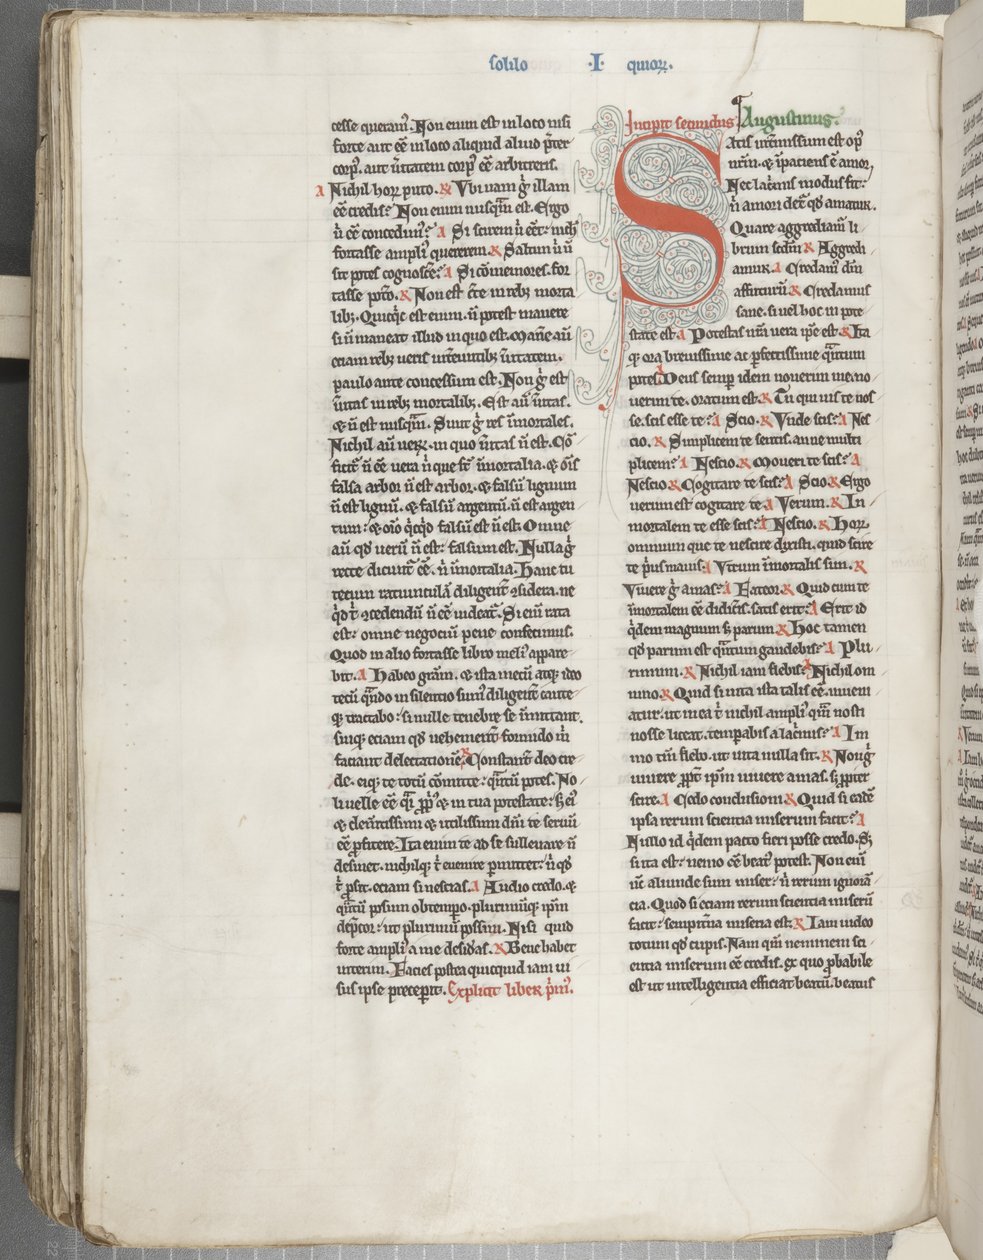 solilo ·I· quiorꝝ.
cesse queram᷑. Non enim est in loco nisi
forte aut eē in loco aliquid aliud p̄ter
corpꝰ. aut ūitatem corpꝰ eē arbitreris.
A Nichil horꝝ puto. R Vbinam gͥ illam
eē credis? Non enim nusqͣm est. Ergo
Si scirem
fortasse ampliꝰ quererem. R Saltim
sit potes cognosce᷑? A Si cōmemores. for
tasse poto. R Non est c̄te in rebꝫ morta
libꝫ. Quicqͥc est enim. n̄ potest manere
si n̄ maneat illud in quo est. Mane᷑ aū
eciam rebꝫ veris intereuntibꝫ ūitatem.
paulo ante concessum est. Non gͥ est
ūitas in rebꝫ mortalibꝫ. Est aū ūitas.
⁊ n̄ est nusqͣm. Sunt gͥ res īmortales.
Nichil aū uerꝝ. in quo ūitas n̄ est. Cō
ficit᷑ n̄ eē uera nͥ que st̄ īmortalia. ⁊ oīs
falsa arbor n̄ est arbor. ⁊ falsū lignum
n̄ est lignū. ⁊ falsū argentū. n̄ est argen
tum: ⁊ oīo qͥcqͥd falsū est n̄ est. Omne
aū qd̄ verū n̄ est: falsum est. Nulla gͥ
recte dicunt᷑ eē. nͥ īmortalia. Hanc tu
tecum ratiunculā diligent᷑ ꝯsidera. ne
qͥd tͥ ꝯcedendū n̄ eē uideat᷑. Si enī rata
est: omne negociū pene confecimus.
Quod in alio fortasse libro meliꝰ appare-
bit. A Habeo gr̄am. ⁊ ista mecū atqꝫ ideo
tecū qͣndo in silentio sumꝰ diligent᷑ caute-
qꝫ tractabo: si nulle tenebre se īmittant.
suiqꝫ eciam qd̄ uehement᷑ formido mͥ
faciant delectationē. R Constant᷑ deo cre-
de. eiqꝫ te totū cōmitte: qͣntū potes. No
li uelle eē qͣi ꝓpͥꝰ ⁊ in tua potestate: sꝫ eiꝰ
⁊ clem̄tissimi ⁊ utilissimi dn̄i te seruū
eē ꝓfitere. Ita enim te ad se subleuare n̄
desinet. nichilqꝫ tͥ euenire ꝑmittet: nͥ qd̄
tͥ ꝓsit. eciam si nescias. A Audio credo. ⁊
qͣntū possum obtempo. plurimūqꝫ ipm̄
dep̄cor: ut plurimū possim. Nisi quid
forte ampliꝰ a me desid̓as. R Bene habet
interim. Facies postea quicquid iam ui
sus ipse preceperit. Explicit liber pͥmꝰ.
Incipit secundus ¶Augustinus.
Satis īt̓missum est opꝰ
nr̄m. ⁊ īpaciens ē amor,
Nec lacͥmis modus fit:
nͥ amori det᷑ qd̄ amatur.
Quare aggrediam᷑ li-
brum sed̄m R Aggredi-
amur. A Credamꝰ dm̄
affuturū R Credamus
sane. si uel hoc in pote
state est. A Potestas nr̄a vera ipse est. R Ita
qꝫ ora breuissime ac perfectissime qͣntum
potes. A Deus semper idem nouerim me. no-
uerim te. oratum est. R Tu qui uis te nos-
se. scis esse te? A Scio. R Vnde scis? A Nes
cio. R Simplicem te sentis. anne multi
plicem? A Nescio. R Moueri te scis? A
Nescio R Cogitare te scis? A Scio R Ergo
uerum est cogitare te. A Verum. R In
mortalem te esse scis? A Nescio. R Horꝝ
omnium que te nescire dyxisti. quid scire
te pͥus mauis. A Vtrum īmortalis sim. R
Viuere gͥ amas? A Fateor. R Quid cum te
īmortalem eē didicͥis. satis erit? A Erit id
qͥdem magnum sꝫ parum R Hoc tamen
qd̄ parum est qͣntum gaudebis? A Plu-
rimum. R Nichil iam flebis? A Nichil om
nino. R Quid si uita ista talis eē. inueni
atur. ut in ea tͥ nichil ampliꝰ qͣm nosti
nosse liceat. temperabis a lacͥmis? A Im
mo tm̄ flebo. ut uita nulla sit. R Non gͥ
uiuere ꝓpt᷑ ipm̄ uiuere amas. sꝫ ꝓpter
scire. A Cedo conclusioni R Quid si eadē
ipsa rerum scientia miserum facit? A
Nullo id qͥdem pacto fieri posse credo. Sꝫ
si ita est: nemo eē beatꝰ potest. Non enī
nc̄ aliunde sum miser: nͥ rerum ignorā-
cia. Quod si eciam rerum scientia miserū
facit: sempit̓na miseria est. R Iam uideo
totum qd̄ cupis. Nam qm̄ neminem sci-
entia miserum eē credis. ex quo ꝓbabile
est ut intelligentia efficiat beatū. beatus